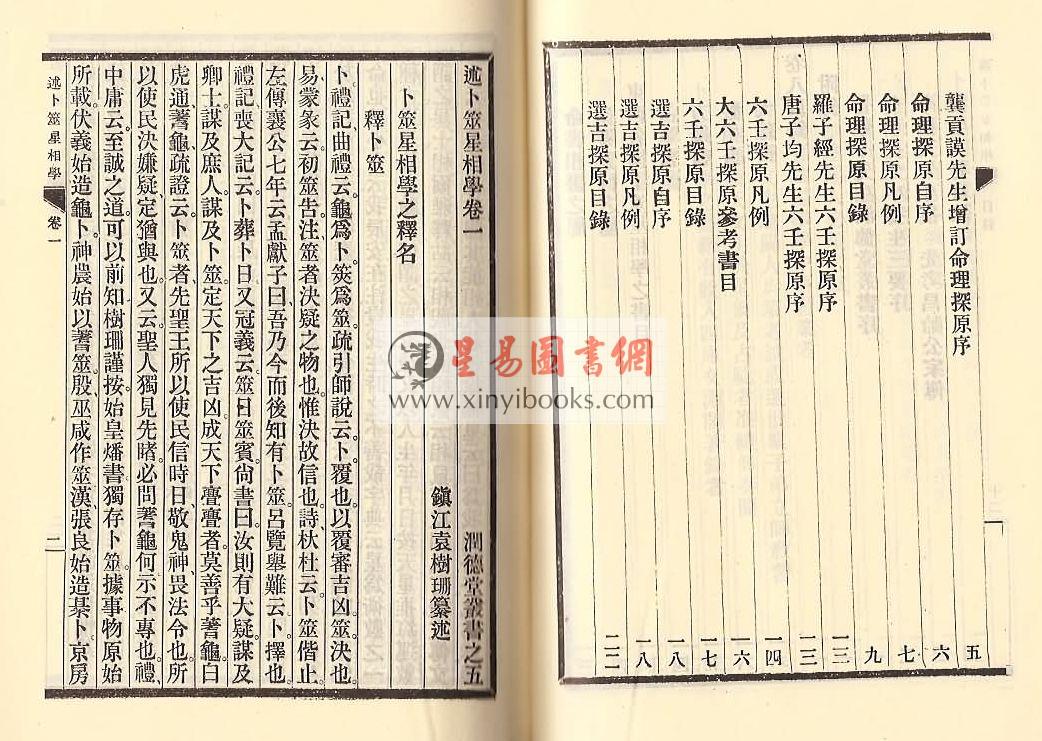 龔貢謨先生增訂命理探原序 五
命理探原自序 六
命理探原凡例 七
命理探原目錄 九
羅子經先生六壬探原序 一三
唐子均先生六壬探原序 一三
六壬探原凡例 一四
大六壬探原參考書目 一六
六壬探原目錄 一七
選吉探原自序 一八
選吉探原凡例 一八
選吉探原目錄 二二
述卜筮星相學卷一 潤德堂叢書之五
卜筮星相學之釋名 鎮江袁樹珊纂述
釋卜筮
卜、禮記曲禮云。龜爲卜。筴爲筮。疏引師說云。卜、覆也。以覆審吉凶。筮、決也。
易蒙彖云。初筮吿。注、筮者決疑之物也。惟決故信也。詩、杕杜云。卜筮偕止。
左傳襄公七年云。孟獻子曰。吾乃今而後知有卜筮。呂覽舉難云。卜、擇也。
禮記、喪大記云。卜葬卜日。又冠義云。筮日筮賓。尙書曰。汝則有大疑。謀及
卿士。謀及庶人。謀及卜筮。定天下之吉凶。成天下亹亹者。莫善乎蓍龜。白
虎通、蓍龜疏證云。卜筮者。先聖王所以使民信時日、敬鬼神、畏法令也。所
以使民決嫌疑、定猶與也。又云。聖人獨見先睹。必問蓍龜何。示不專也。禮、
中庸云。至誠之道。可以前知。樹珊謹按。始皇燔書。獨存卜筮。據事物原始
所載。伏義始造龜卜。神農始以蓍筮。殷巫咸作筮。漢張良始造棊卜。京房
述卜筮星相學 卷一 一
星易圖書網
www.xinyibooks.com